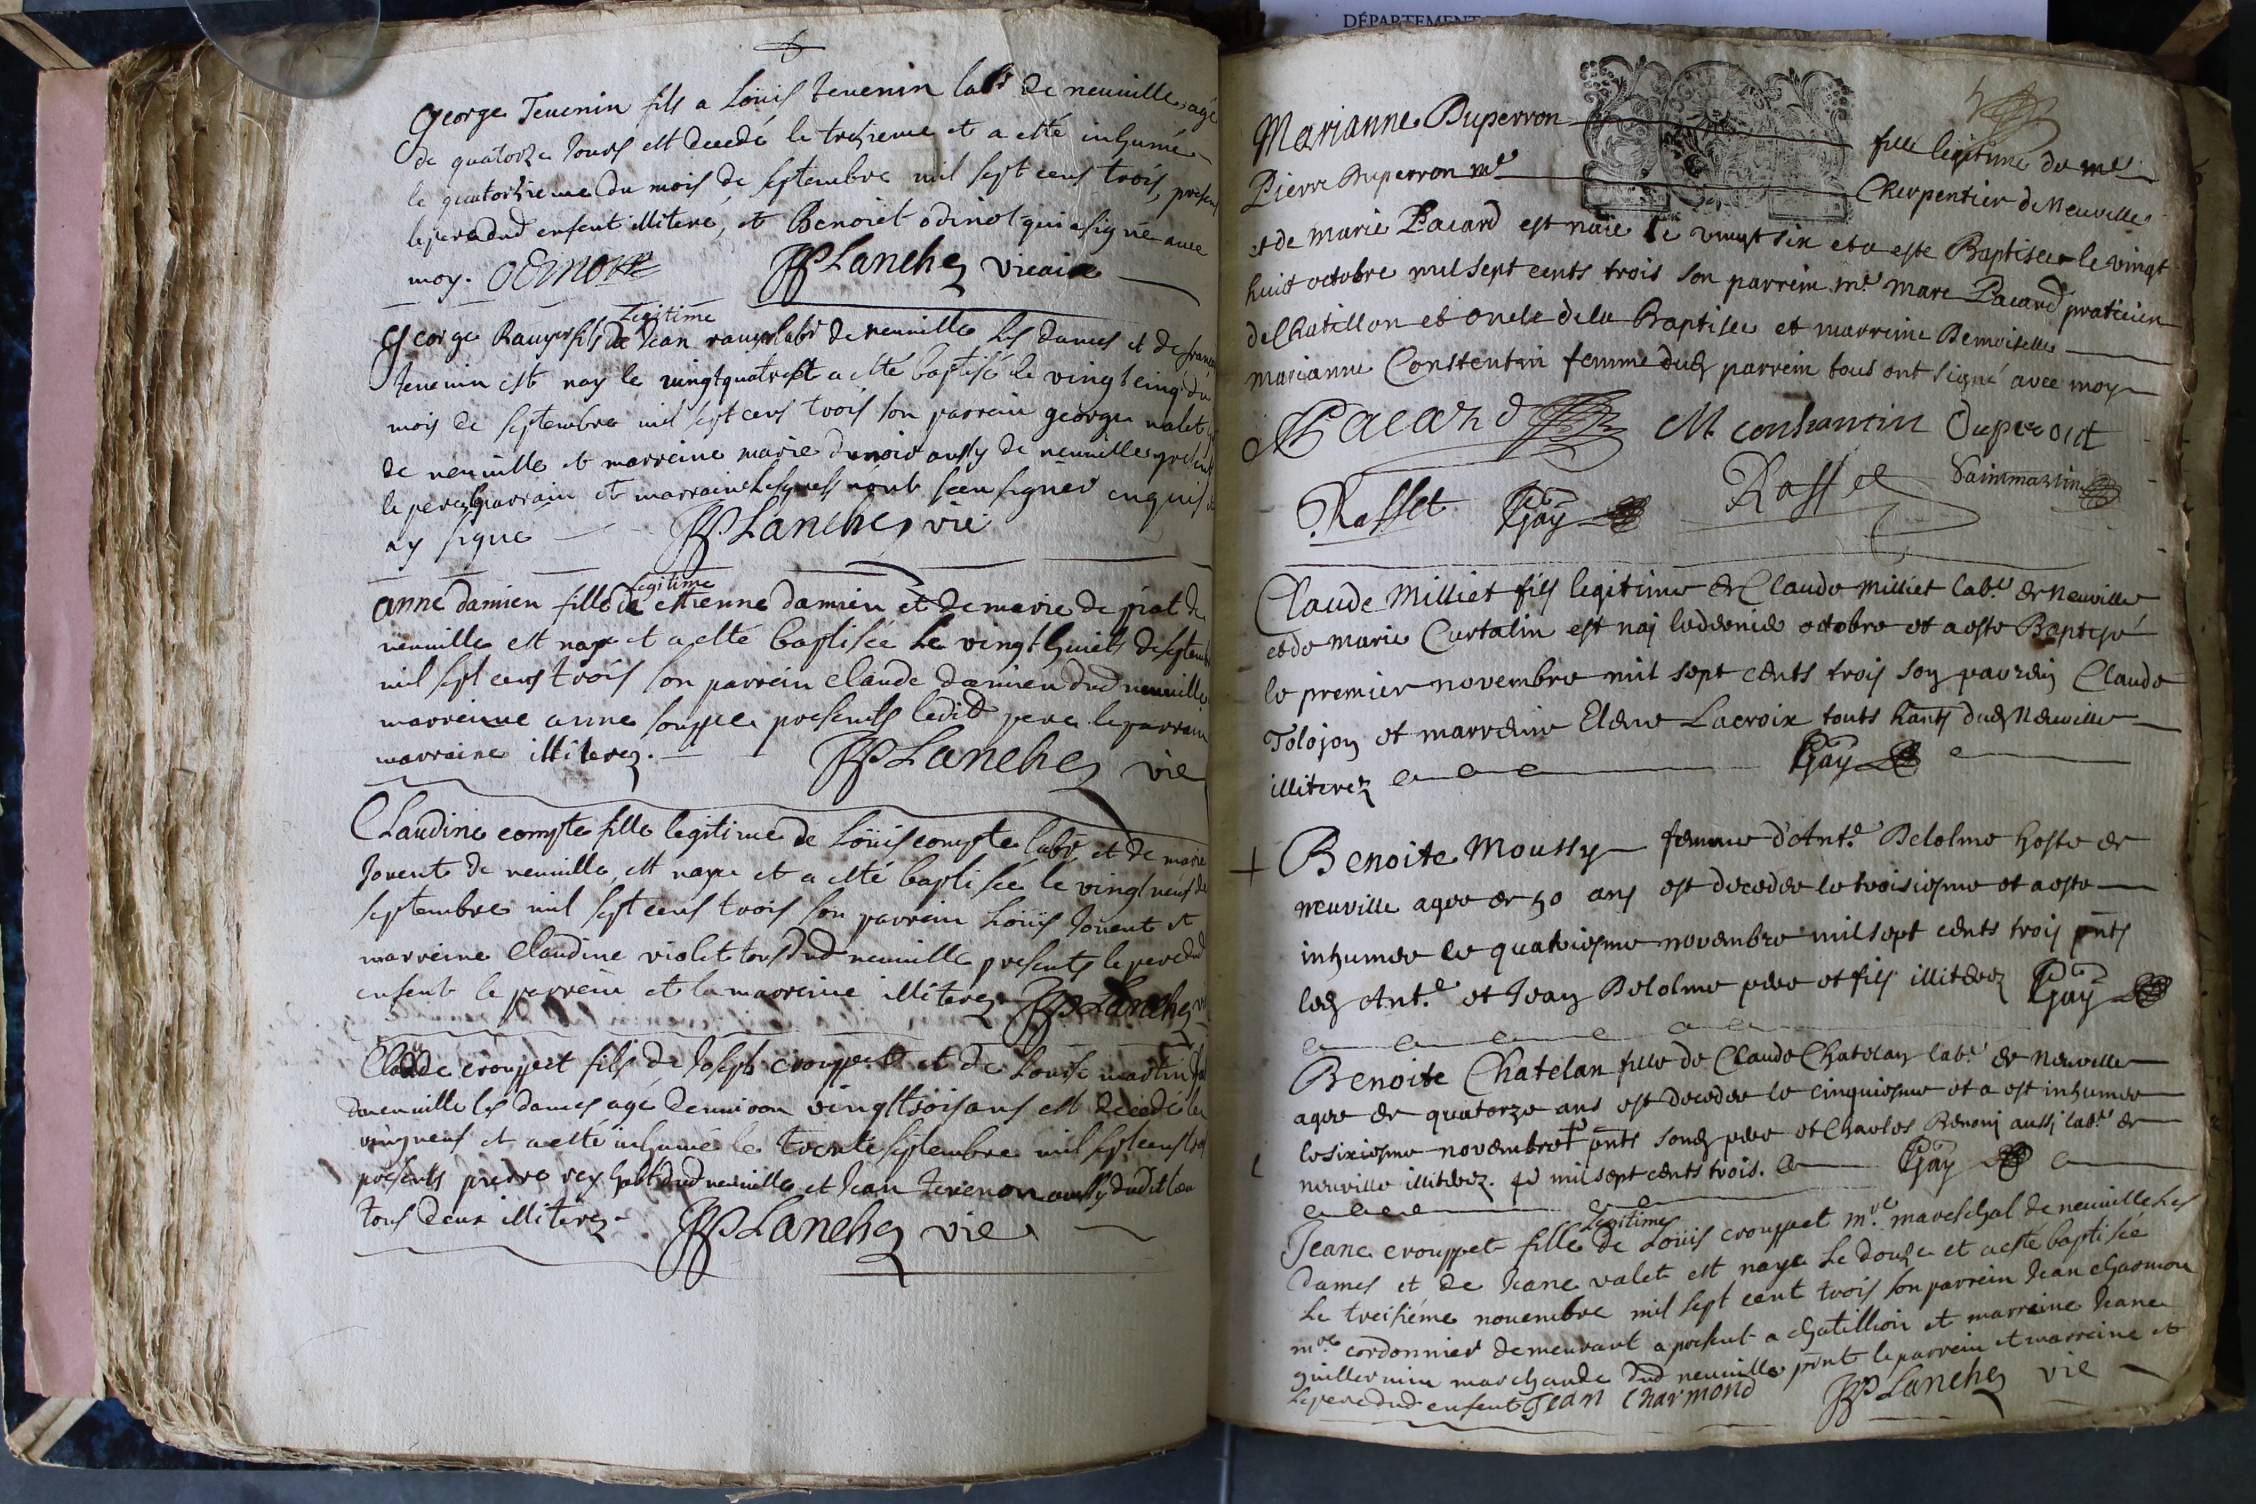 George Tevenin fils a Loüis tevenin labr de neuuille agé
de quatorze Jours est decedé le treizieme et a esté inhumé
le quatorzieme du mois de septembre mil sept cens trois, presens
le pere dud enfent illiteré, et Benoict odinot qui a signé avec
moy. odinot Lanchez vicaire
legitime
George Rauy fils de Jean rauy labr de neuuille les dames et de francoi
tevenin est nay le vingtquatre et a esté baptisé le vingt cinq du
mois de septembre mil sept cens trois son parrein george valet
de neuuille et marreine marie dunoir aussy de neuuille presents
le pere parrain et marraine lesquels n'ont sceu signer enquis et
ay signé Lanchez vic
legitime
anne damien fille de estienne damien et de marie de prat de
neuuille est naye et a esté baptisée le vingt huict de septembre
mil sept cens trois son parrein claude damien dud neuuille
marreine anne presents ledit pere le parrain
marraine illiterez. Lanchez vic
Claudine compte fille legitime de Loüis compte labr et de marie
Jouent de neuuille est naye et a esté baptisée le vingt neuf de
septembre mil sept cens trois son parrein Loüis Jouent et
marreine Claudine violet tous dud neuuille presents le pere dud
enfent le parrein et la marreine illiterez Lanchez vic
Claude crouppet fils de Joseph crouppet et de Louise martin
de neuuille les dames agé denuiron vingt trois ans est decedé le
vingneuf et a esté inhumé le trente septembre mil sept cens trois
presents pierre rey habt dud neuuille et Jean tevenon aussy dudit lieu
tous deux illiterez. Lanchez vic
DÉPARTEMENT
Marianne Duperron fille legitime de me
Pierre Duperron me Cherpentier de Neuville
et de marie Pacard est naie le vingt six et a este Baptisee le vingt
huit octobre mil sept cents trois son parrein me marc Pacard praticien
de Chatillon et oncle de la Baptisee et marreine Demoiselle
marianne Constentin femme dud parrein tous ont signé avec moy
Pacard M constantin Duperont
Rosset Gay Rosset Dainmartin
Claude Milliet fils legitime de Claude Milliet labr de Neuville
et de marie Curtalin est naj le dernier octobre et a este Baptisé
le premier novembre mil sept cents trois son parrein Claude
Tolojon et marreine Elene Lacroix touts hants dud Neuville
illiterez Gay
+ Benoite Moussy femme d'Ant.e Delolme hoste de
neuville agee de 50 ans est decedee le troisiesme et a este
inhumee le quatriesme novembre mil sept cents trois pnts
led Ant.e et Jean Delolme pere et fils illiterez Gay
Benoite Chatelan fille de Claude Chatelan labr de Neuville
agee de quatorze ans est decedee le cinquiesme et a est inhumee
le sixiesme novembre + pnts sond pere et Charles Benoni aussi labr de
neuville illiterez. + mil sept cents trois. Gay
legitime
Jeane crouppet fille de Loüis crouppet mre mareschal de neuuille Les
Dames et de Jeane valet est naye le douze et a esté baptisée
Le treisiéme nouembre mil sept cent trois son parrein Jean charmon
mre cordonnier demeurant a present a chatillion et marreine Jeane
guillermin marchande dud neuuille pnt le parrein et marreine et
le pere dud enfent Jean Charmond Lanchez vic